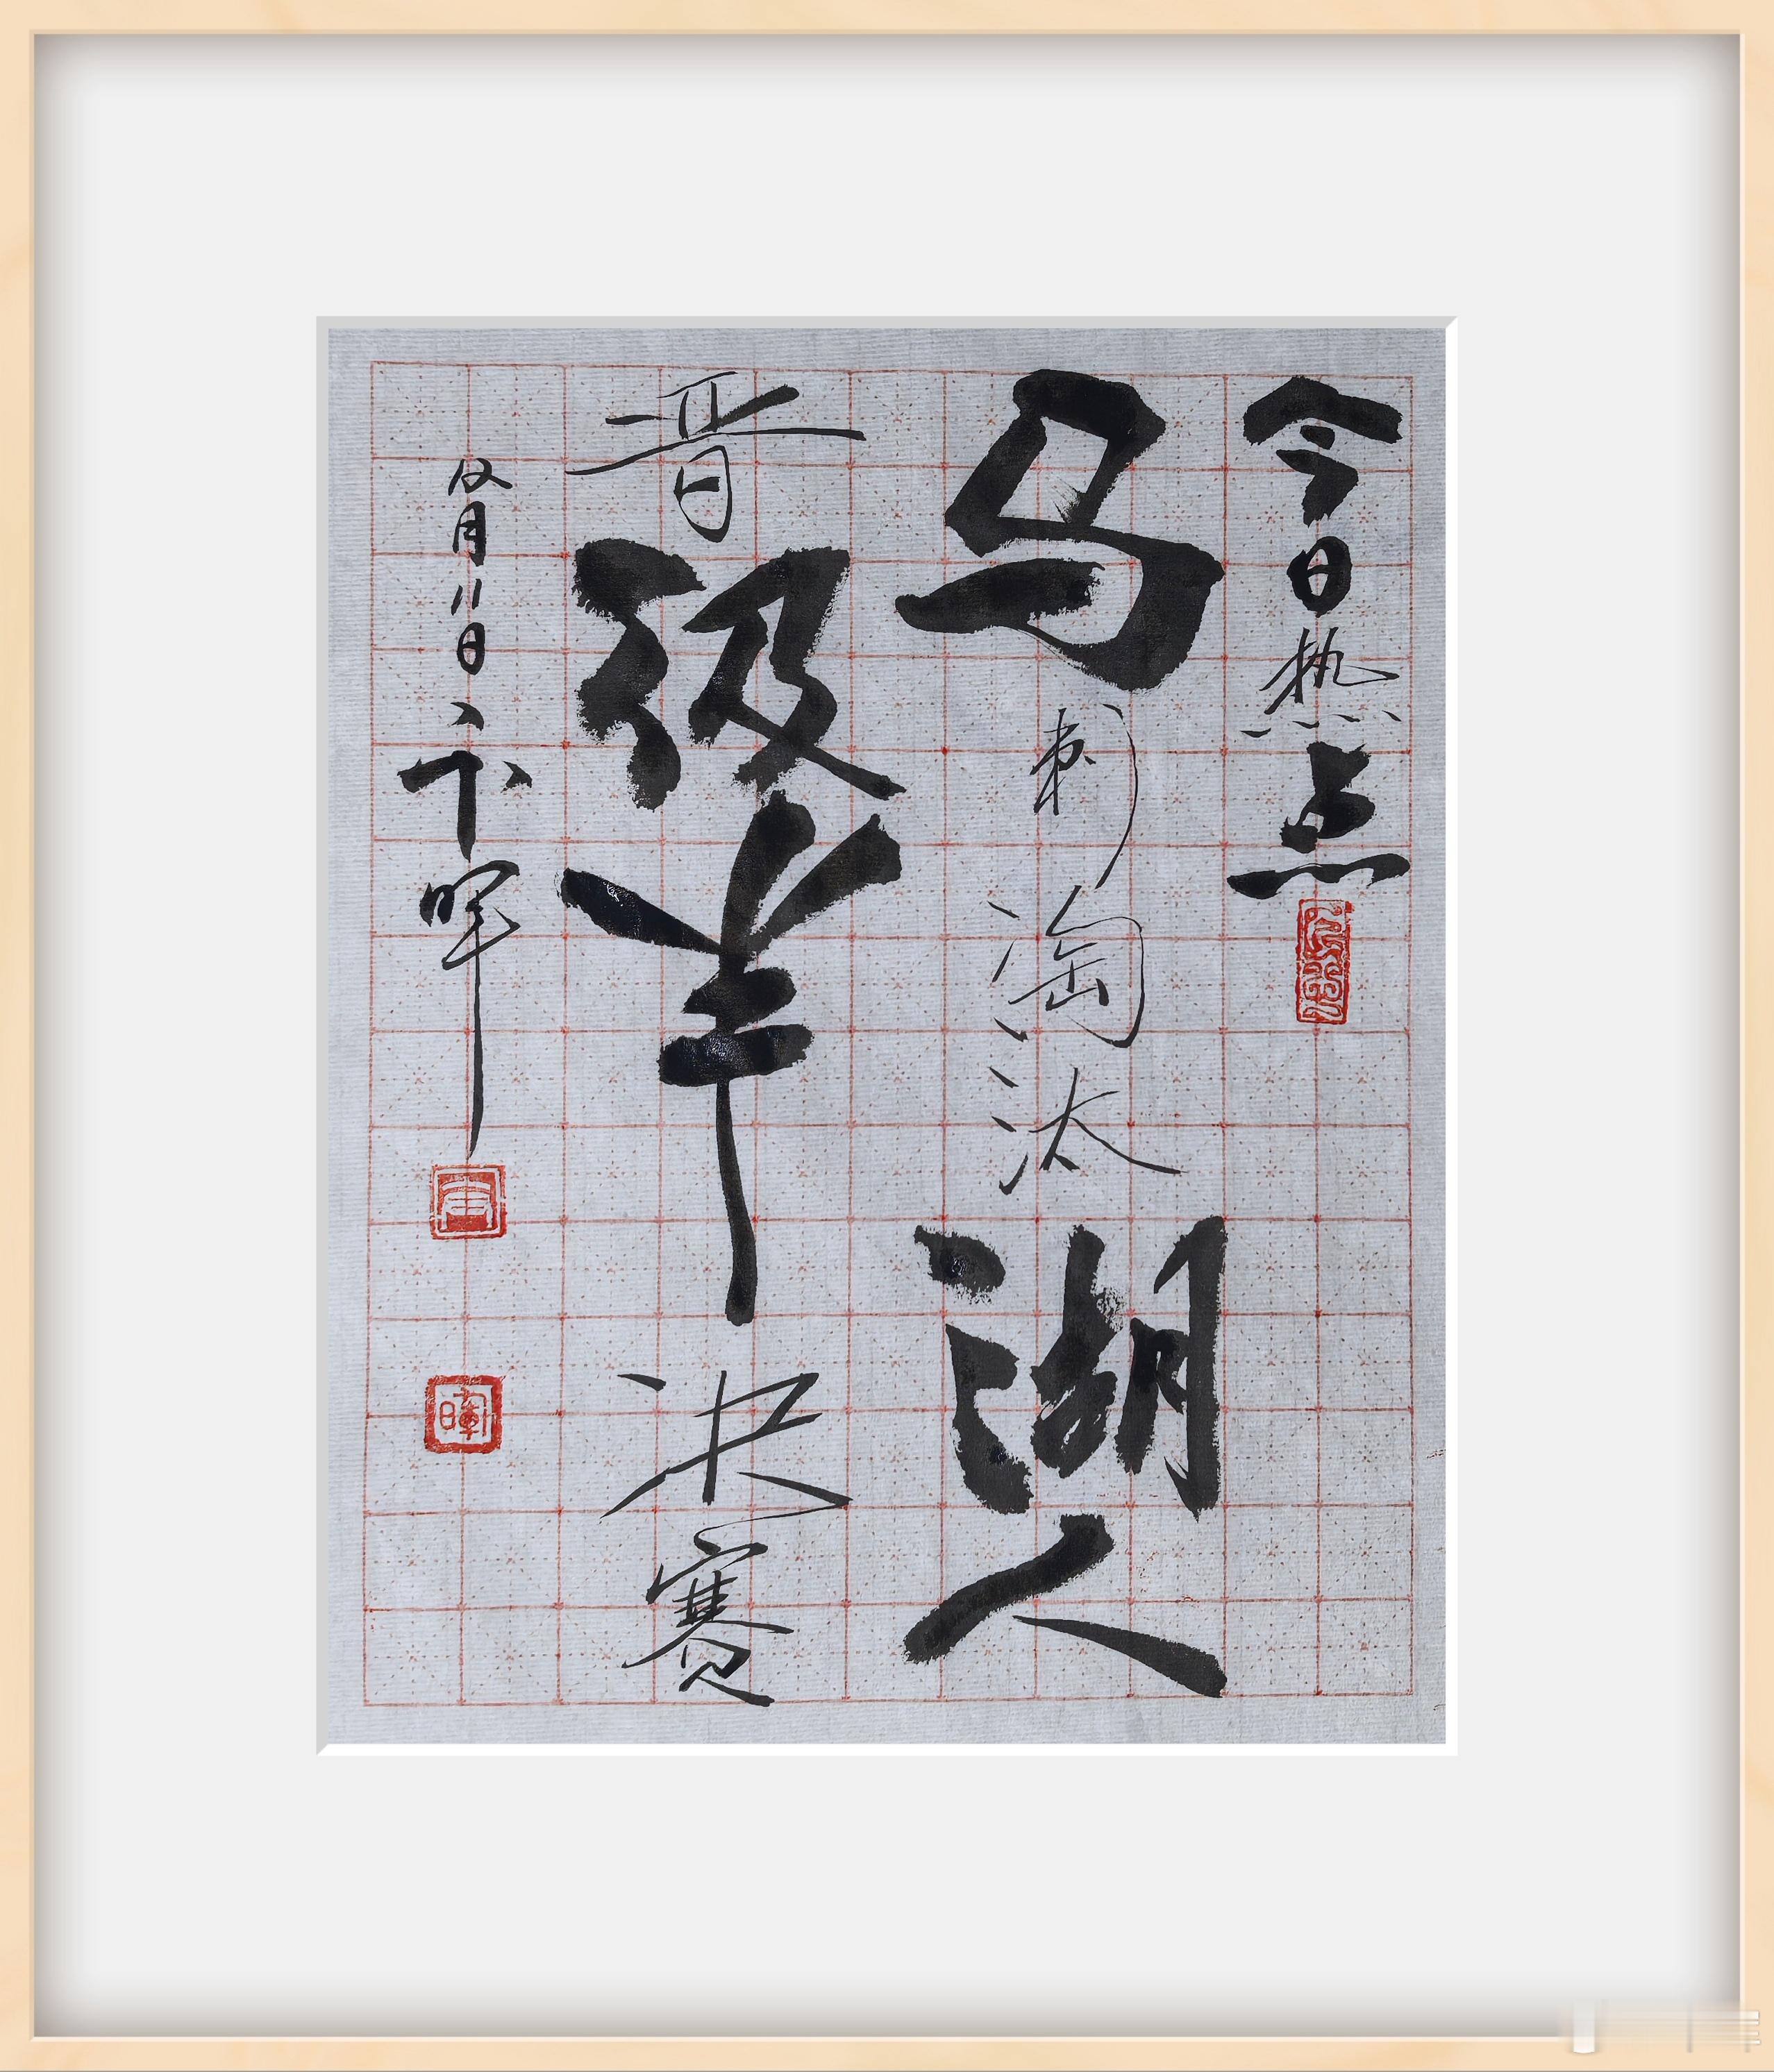 今日热点
马刺淘汰湖人
晋级半决赛
12月11日卞晖
暉